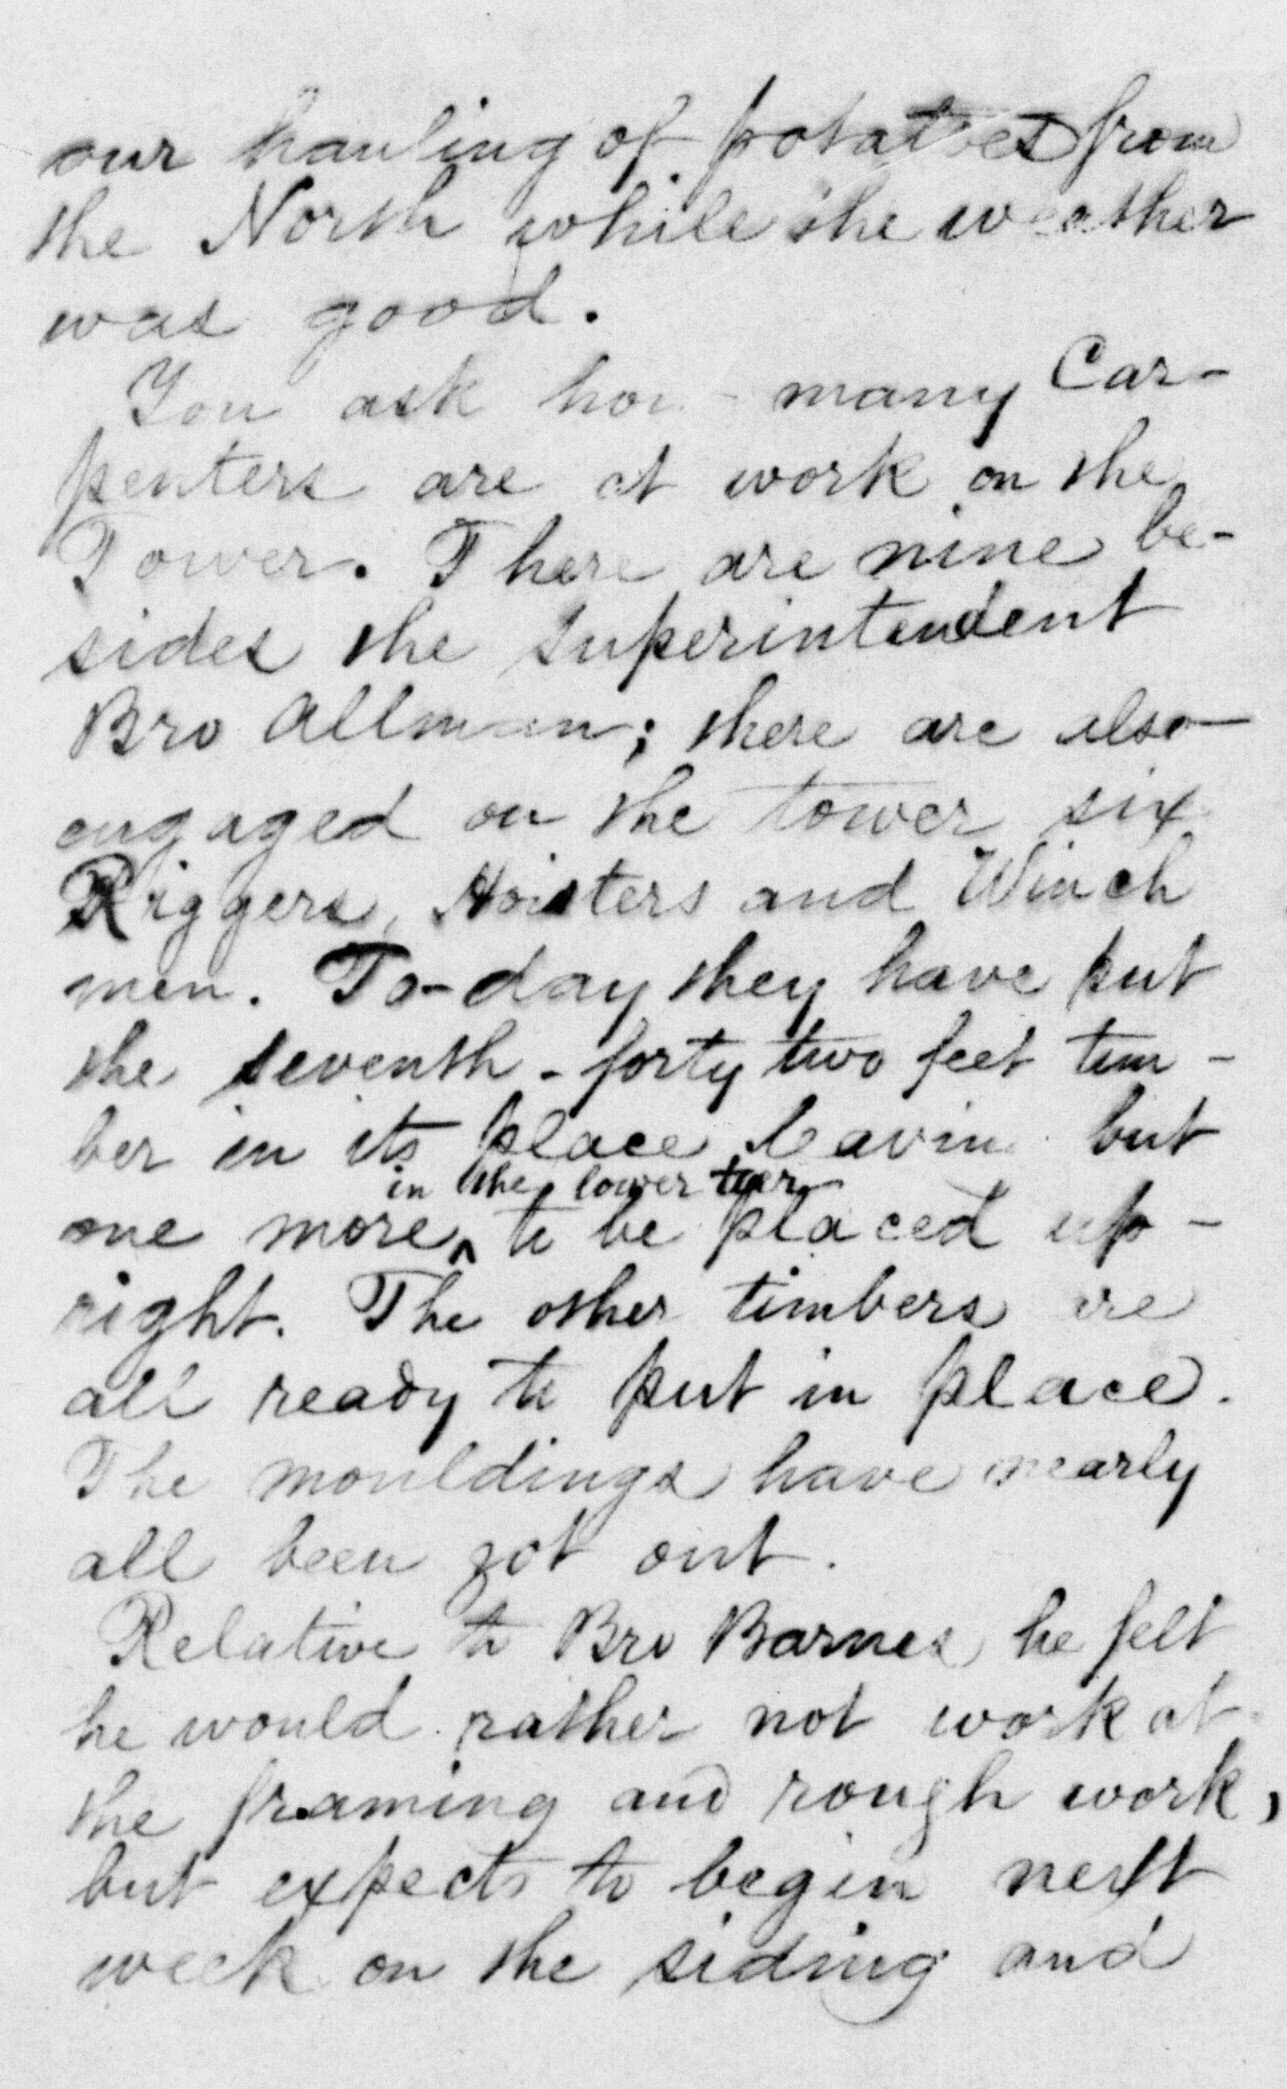 our hauling of potatoes from
the North while the weather
was good.
You ask how many Car-
penters are at work on the
Tower. There are nine be-
sides the Superintendent
Bro Allman; there are also
engaged on the tower six
Riggers, Hoisters and Winch
men. To-day they have put
the seventh - forty two feet tim-
ber in its place leaving but
in the lower tier
one more ^ to be placed up-
right. The other timbers are
all ready to put in place.
The mouldings have nearly
all been got out.
Relative to Bro Barnes, he felt
he would rather not work at
the framing and rough work,
but expects to begin next
week on the siding and